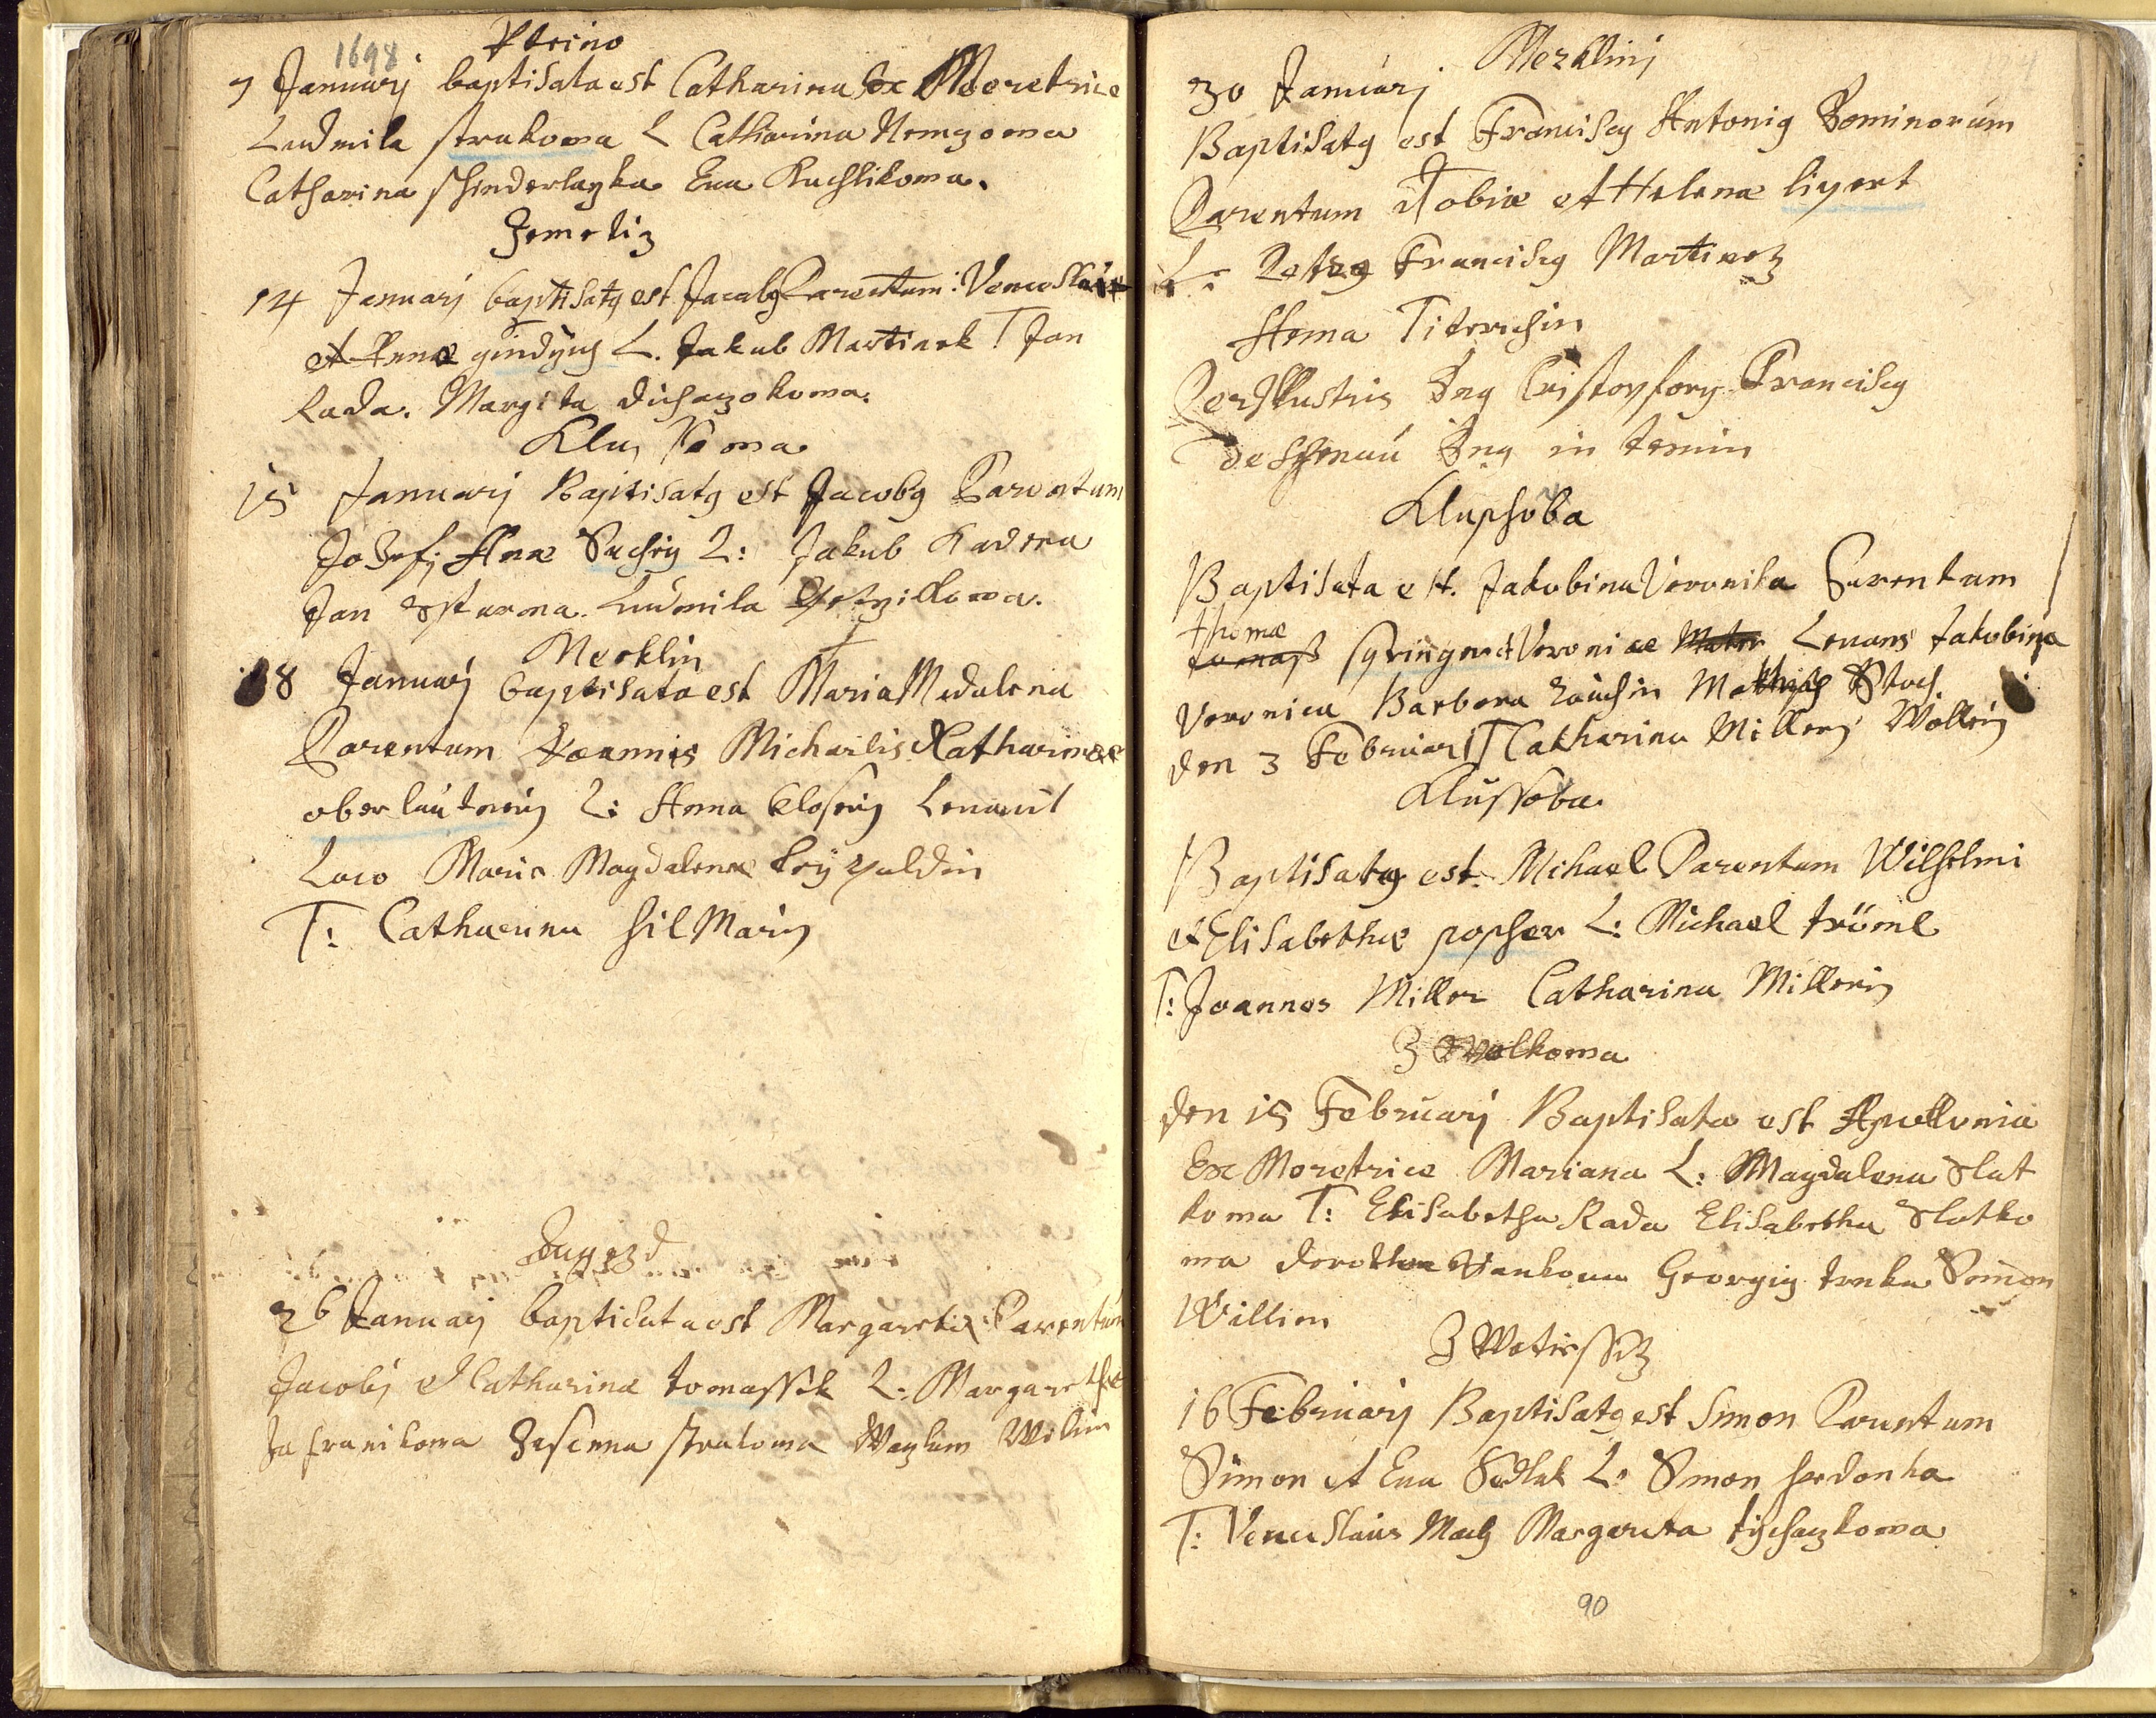 1698 Ptrino
7 Januarij baptisata est Catharina Ex Meretrice
Ludmila strakowa L Catharina Nemzowa
Catharina Schinderlayka Eva Kuchlikowa.
Zemetiz
14 Januarij baptisatq est Jacobq Parentum: Venceslai
et Annæ gindrych L. Jakub Martinek T Jan
Rada. Margita
Klussowa
15 Januarij Baptisatq est Jacobq Parentum
Josefi Anæ Suchey L: Jakub Kadera
Jan Ludmila
Mercklin
18 Januarij baptisata est Maria Madalena
Parentum Joannis Michaelis Catharinæ
oberlautnerin L: Anna Closerin Levavit
Loco Maria Magdalena
T: Catharina hilMarin
Augezd
26 Januarij baptisata est Margareta Parentum
Jacobi et Catharinæ tomassek L: Margaretha
strakowa Waczlaw Wilim
Merklinj
30 Januarj
Baptisatq est Franciscq Antoniq Dominorum
Parentum Tobiæ et Helenæ lipert
L: Petrq Franciscq Martinetz
Anna
PerIllustris Dnq Cristopforq Franciscq
de Schenau Dnq in temin
Klupshoba
Baptisata est. Jakobina Veronika Parentum
thomæ
tomass springer et Veronicæ Mater Levans Jakobina
Veronica Barbora Mathias Stoch.
den 3 Februarj T Catharina Millerj
Klussoba
Baptisatq est. Mihael Parentum Wilhelmi
et Elisabethæ popher L: Michael trüml
T: Joannes Miller Catharina Millerin
Z Wolkowa
den 15 Februarj Baptisata est Apollonia
Ex Meretrice Mariana L: Magdalena Slat
kowa T: Elisabetha Rada Elisabetha Slatko
wa dorothea Wankowa Georgiq trnka Simon
Willim
Z Wetirssitz
16 Februarj Baptisatq est Simon Parentum
Simon et Eua Sedlak L: Simon herdonka
T: Venceslaus Mach Margareta
90